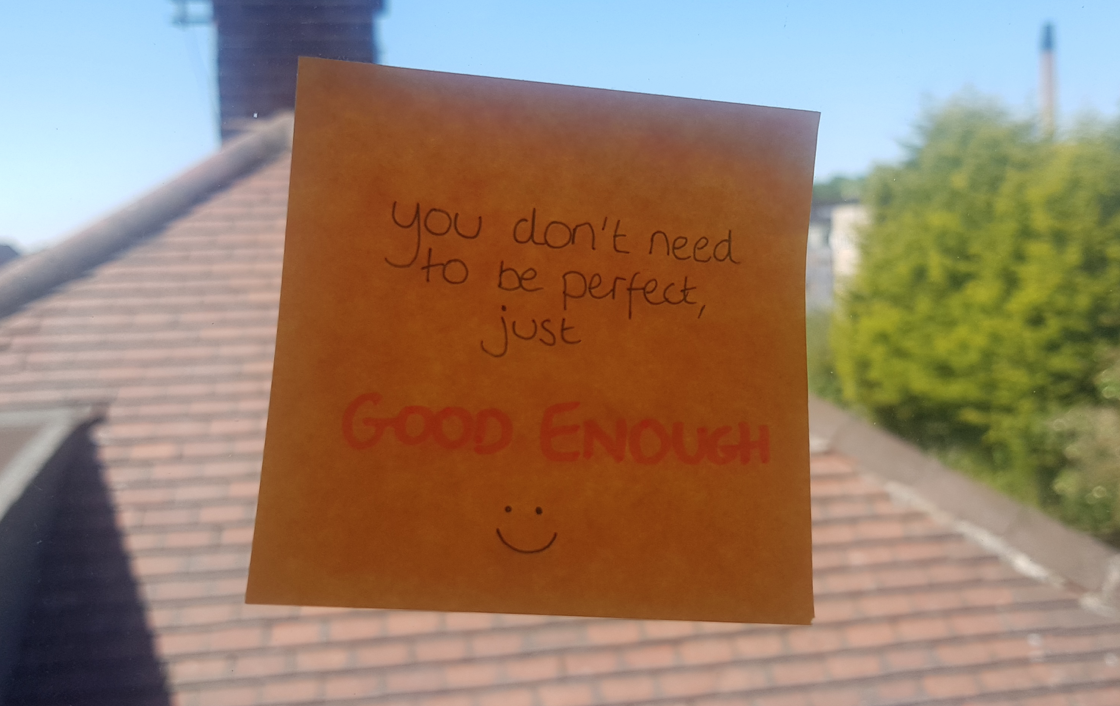 you don't need
to be perfect,
just
GOOD ENOUGH